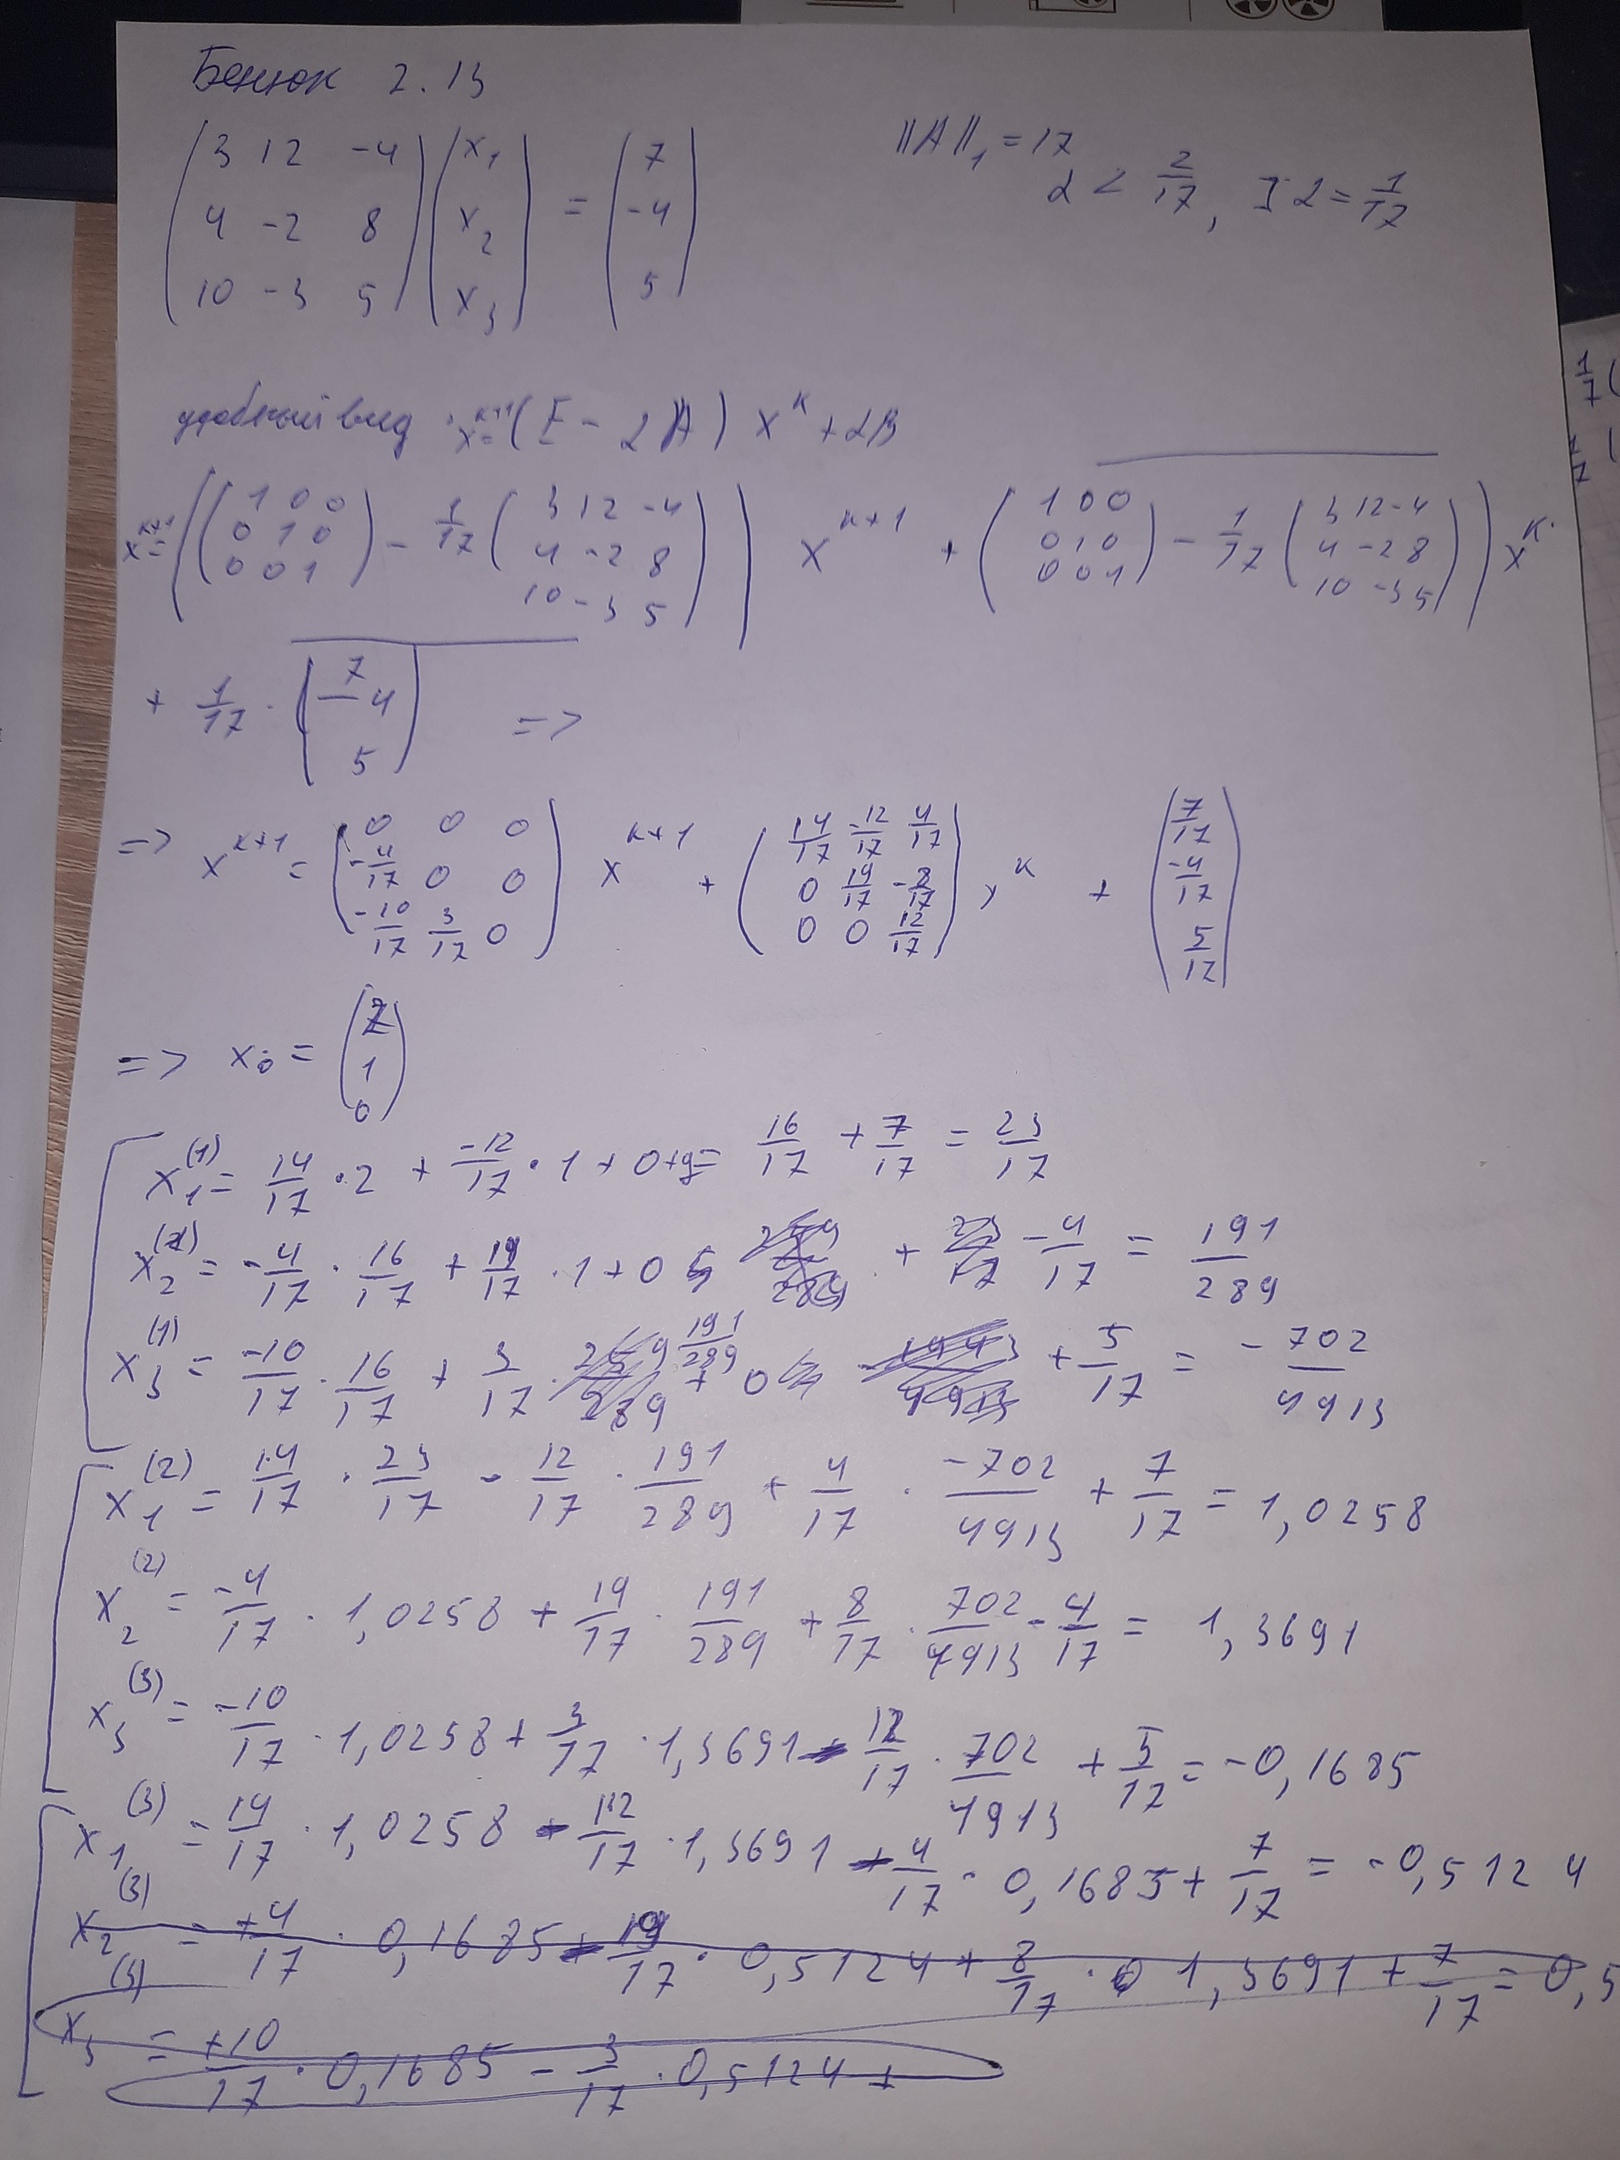 Бенюк 2.13
(3 12 -4; 4 -2 8; 10 -3 5) (x₁; x₂; x₃) = (7; -4; 5)
||A||₁ = 17
α < 2/17, α = 1/17
удобный вид x^(k+1) = (E - αA) x^k + αB
x^(k+1) = ((1 0 0; 0 1 0; 0 0 1) - 1/17 (3 12 -4; 4 -2 8; 10 -3 5)) x^(k+1) + ((1 0 0; 0 1 0; 0 0 1) - 1/17 (3 12 -4; 4 -2 8; 10 -3 5)) x^k
+ 1/17 · (7; -4; 5) =>
=> x^(k+1) = (0 0 0; -4/17 0 0; -10/17 3/17 0) x^(k+1) + (14/17 -12/17 4/17; 0 19/17 -8/17; 0 0 12/17) x^k + (7/17; -4/17; 5/17)
=> x₀ = (2; 1; 0)
x₁^(1) = 14/17 · 2 + -12/17 · 1 + 0 = 16/17 + 7/17 = 23/17
x₂^(1) = -4/17 · 16/17 + 19/17 · 1 + 0 - 4/17 = 191/289
x₃^(1) = -10/17 · 16/17 + 3/17 · 191/289 + 0 + 5/17 = -702/4913
x₁^(2) = 14/17 · 23/17 - 12/17 · 191/289 + 4/17 · -702/4913 + 7/17 = 1,0258
x₂^(2) = -4/17 · 1,0258 + 19/17 · 191/289 + 8/17 · 702/4913 - 4/17 = 1,3691
x₃^(3) = -10/17 · 1,0258 + 3/17 · 1,3691 - 12/17 · 702/4913 + 5/17 = -0,1685
x₁^(3) = 14/17 · 1,0258 - 12/17 · 1,3691 - 4/17 · 0,1685 + 7/17 = -0,5124
x₂^(3) = +4/17 · 0,1685 - 19/17 · 0,5124 + 8/17 · 1,3691 + 7/17 = 0,5
x₃^(3) = +10/17 · 0,1685 - 3/17 · 0,5124 +